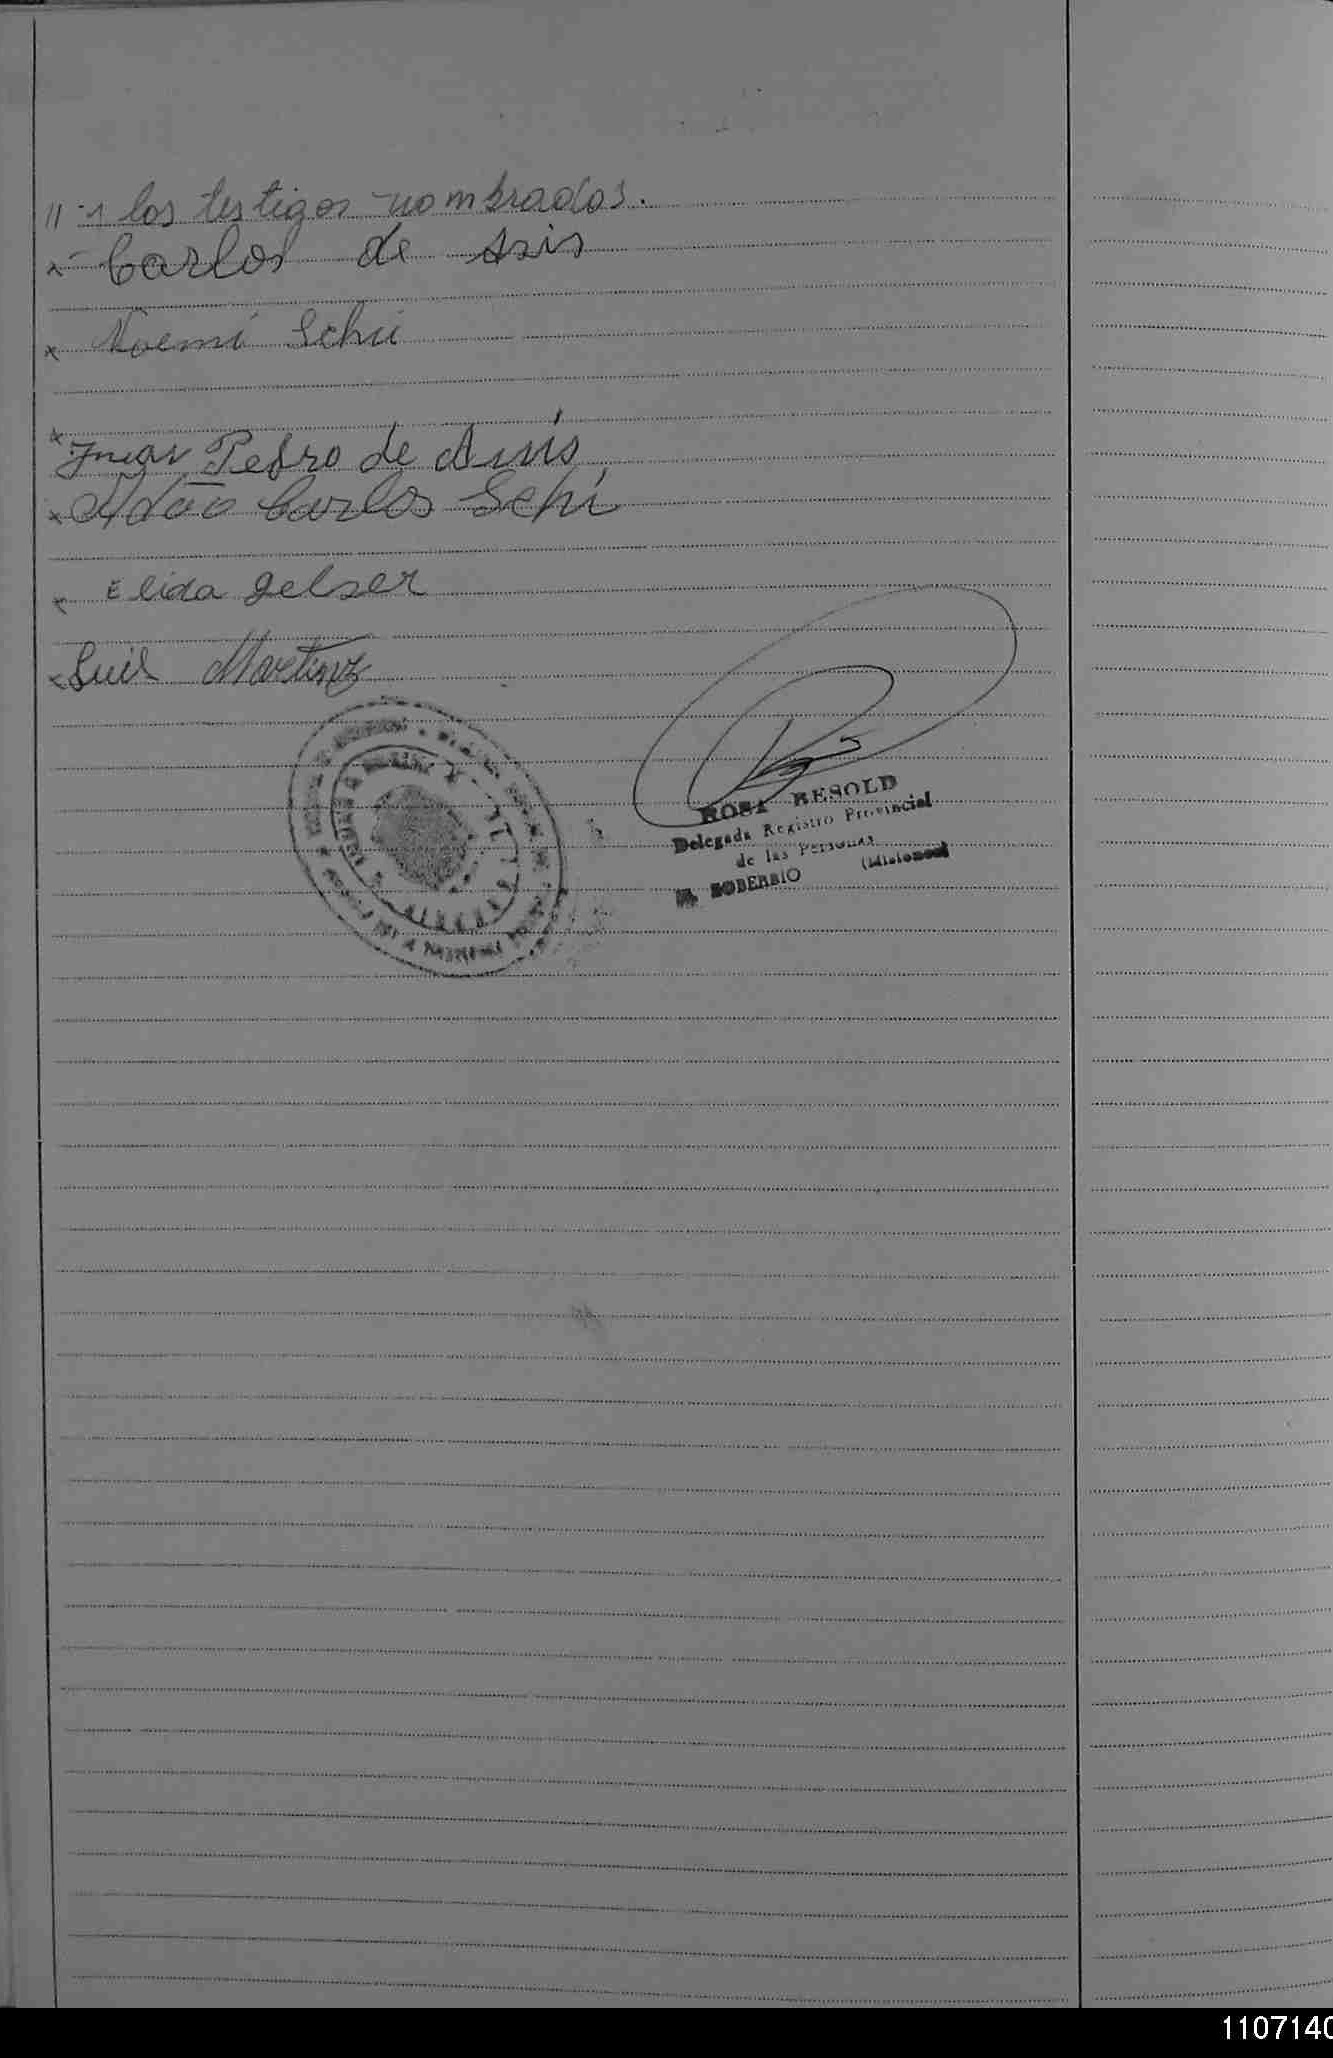 los testigos nombrados.
Carlos de Asis
Noemi Schii
Pedro de Assis
Adão Carlos Schi
Elida Gelser
Luis Martinez
ROSA RESOLD
Delegada Registro Provincial
de las Personas
EL SOBERBIO (Misiones)
1107140